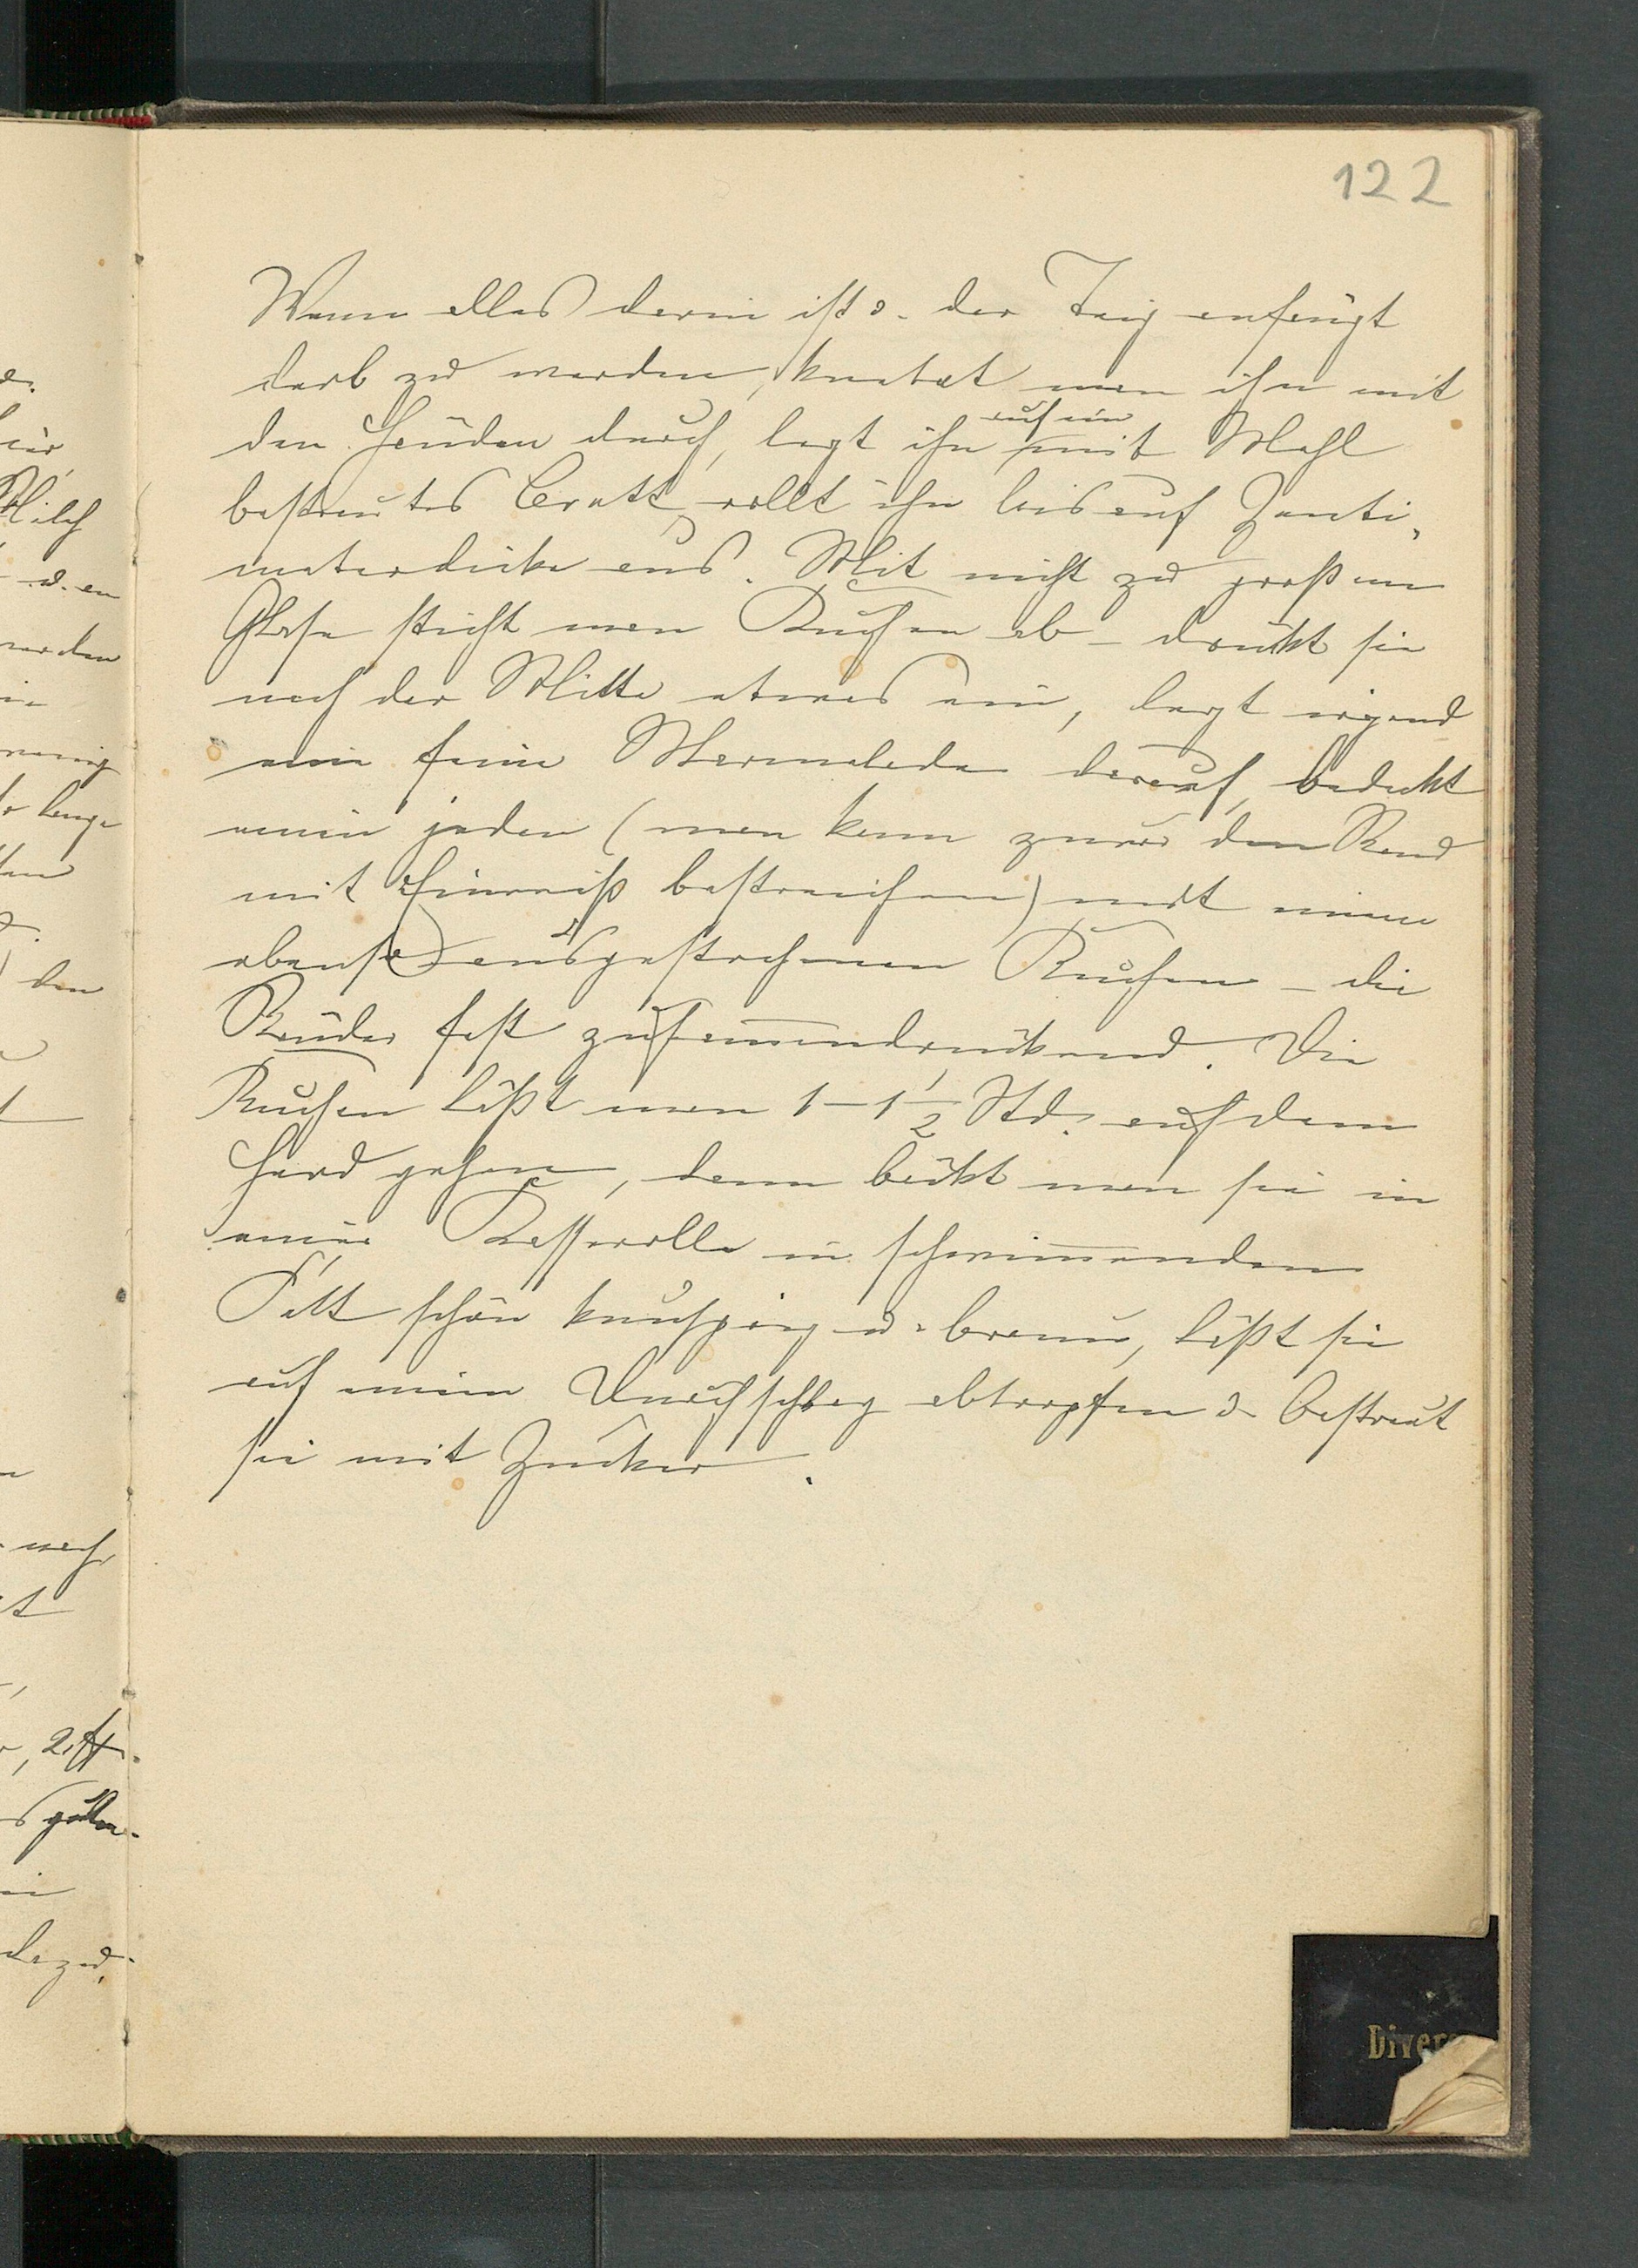 122
Wenn alles darin ist u. der Teig anfängt
derb zu werden, knetet man ihn mit
den Händen durch, legt ihn auf ein mit Mehl
bestreutes Brett, rollt ihn bis auf Zenti-
meterdicke aus. Mit nicht zu großem
Glase sticht man Kuchen ab – drückt sie
nach der Mitte etwas ein, legt irgend
eine feine Marmelade darauf, bedeckt
einen jeden (man kann zuvor den Rand
mit Eiweiß bestreichen) mit einem
ebenso ausgestochenen Kuchen – die
Ränder fest zusammendrückend. Die
Kuchen läßt man 1–1 1/2 Std. auf dem
Herd gehen, dann bäckt man sie in
einer Kasserolle in schwimmendem
Fett schön knusprig u. braun, läßt sie
auf einem Durchschlag abtropfen u. bestreut
sie mit Zucker.
Divers
Milch
u. an
werden
wenig
lange
den
nach
dazu,